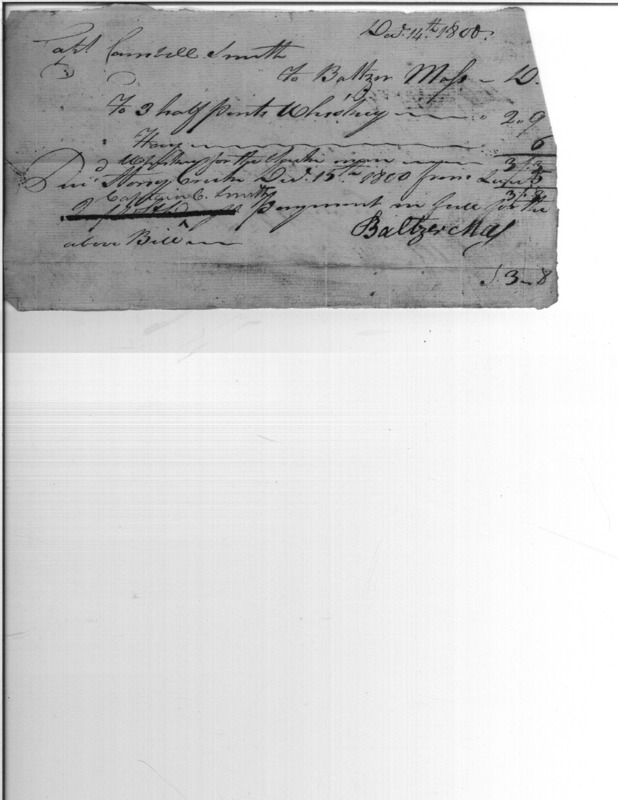 Decr. 14th 1800.
Capt Campbell Smith
To Baltzer Moss – D.
To 3 half pints Whiskey — " 2.9
Hay — 6
Whiskey for the
3/.3
Recd. Stony Creek Decr. 15th 1800 from 5
Captain C. Smith 3/.8
payment in full for the
above Bill Baltzer Mos
£ 3–8